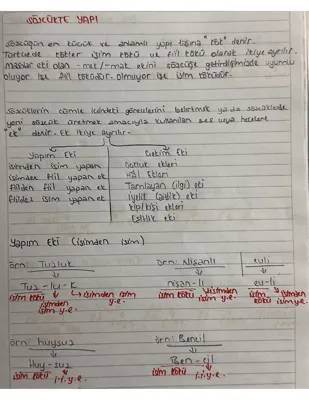 SÖZCÜKTE YAPI
Sözcüğün en küçük ve anlamlı yapı taşına "kök" denir.
Türkçede kökler isim kökü ve fiil kökü olarak ikiye ayrılır.
Mastar eki olan -mek/-mak ekini sözcüğe getirdiğimizde uyumlu
oluyor ise fiil köküdür. Olmuyor ise isim köküdür.
Sözcüklerin cümle içindeki görevlerini belirtmek ya da sözcüklerden
yeni sözcük üretmek amacıyla kullanılan ses veya hecelere
"ek" denir. Ek ikiye ayrılır.
Yapım Eki Çekim Eki
isimden isim yapan Çokluk ekleri
isimden fiil yapan ek Hâl Ekleri
fiilden fiil yapan ek Tamlayan (ilgi) eki
fiilden isim yapan ek İyelik (aitlik) eki
Kip/kişi ekleri
Eşitlik eki
Yapım Eki (isimden isim)
örn: Tuzluk örn: Nişanlı evli
Tuz-lu-k nişan-lı ev-li
isim kökü isimden isim y.e. isimden isim y.e. isim kökü isimden isim y.e. isim kökü isimden isim y.e.
örn: huysuz örn: Bencil
Huy-suz Ben-cil
isim kökü i.i.y.e. isim kökü i.i.y.e.